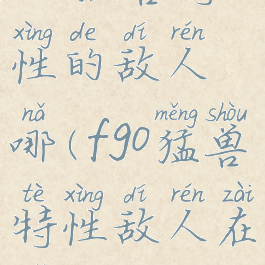 xìng de dí rén
性的敌人
nǎ měng shòu
哪(fgo猛兽
tè xìng dí rén zài
特性敌人在